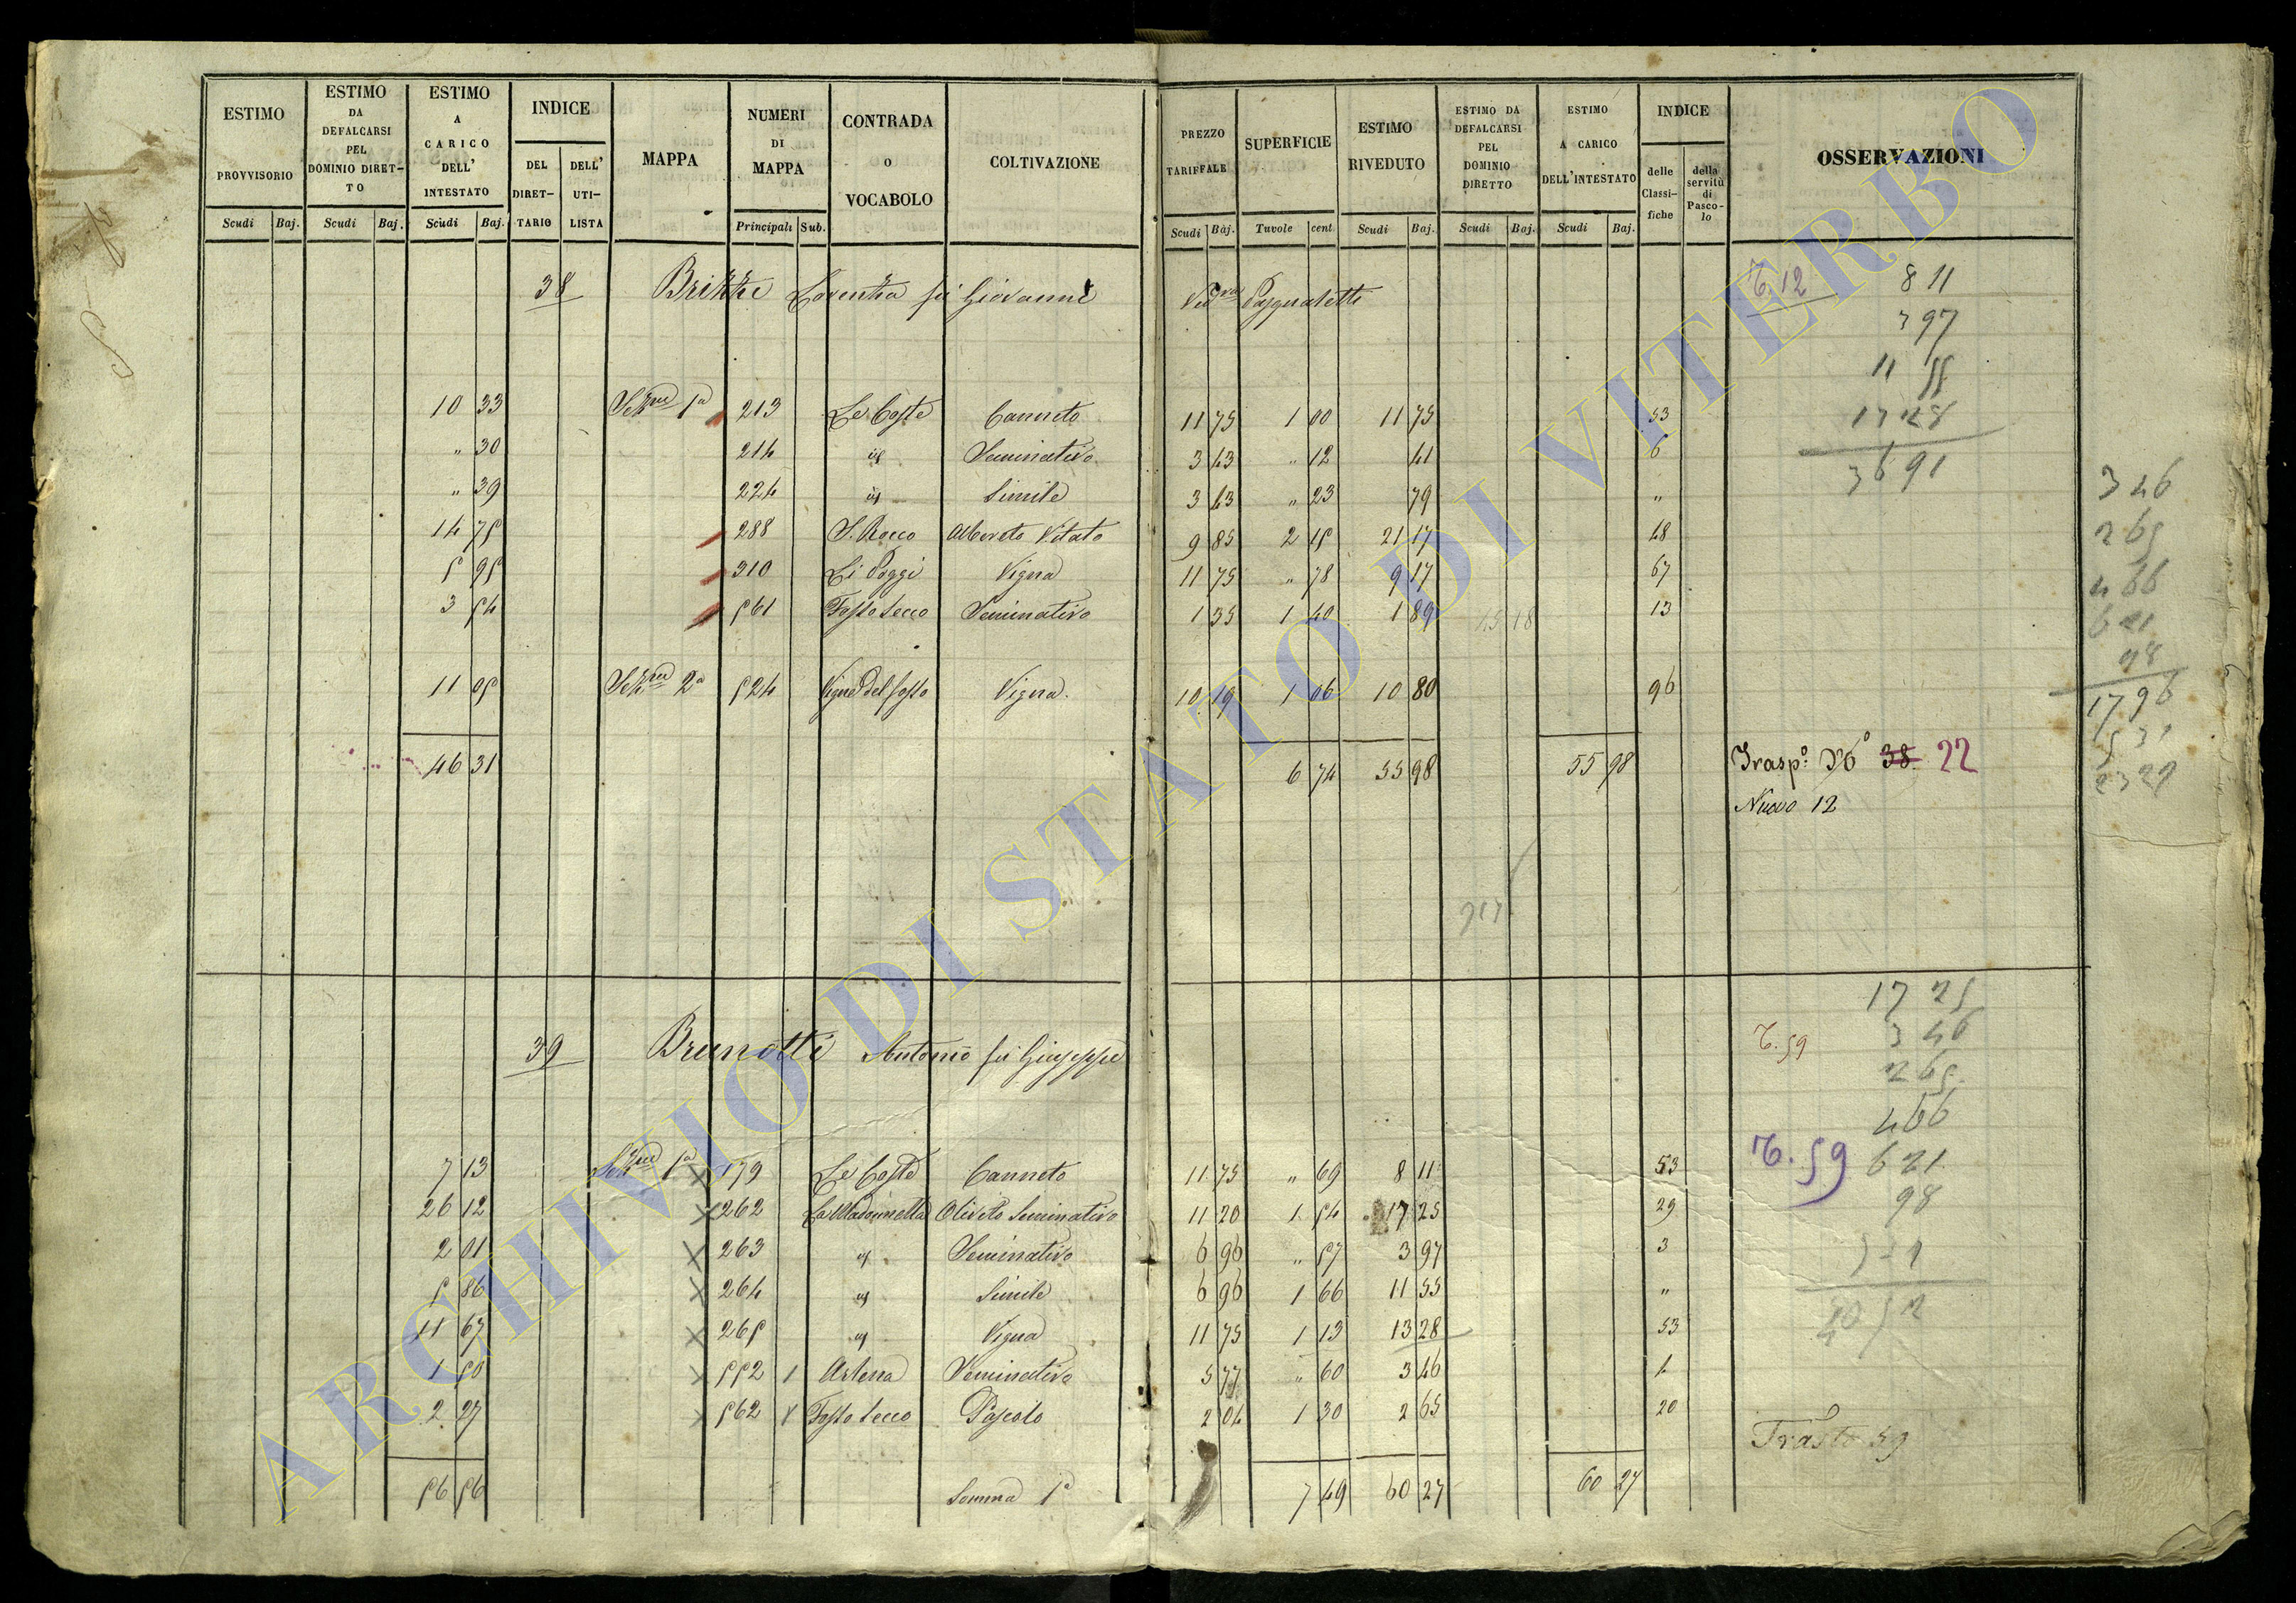 ESTIMO PROVVISORIO
ESTIMO DA DEFALCARSI PEL DOMINIO DIRETTO
ESTIMO A CARICO DELL' INTESTATO
INDICE
DEL DIRETTARIO
DELL' UTILISTA
MAPPA
NUMERI DI MAPPA
CONTRADA O VOCABOLO
COLTIVAZIONE
PREZZO TARIFFALE
SUPERFICIE
ESTIMO RIVEDUTO
ESTIMO DA DEFALCARSI PEL DOMINIO DIRETTO
ESTIMO A CARICO DELL'INTESTATO
INDICE
delle Classifiche
della servitù di Pascolo
OSSERVAZIONI
Scudi Baj. Scudi Baj. Scudi Baj. Principali Sub. Scudi Baj. Tavole cent. Scudi Baj. Scudi Baj. Scudi Baj.
38 Brizzi Lorenza fu Giovanni Ved.va Pasqualetti T. 12
8 11
3 97
11 55
13 28
36 91
10 33 Sez.ne 1a 213 Le Coste Canneto 11 75 1 00 11 75 53
" 30 214 id Seminativo 3 43 " 12 41 6
" 39 224 id Simile 3 43 " 23 79 "
14 75 288 S. Rocco Alberato Vitato 9 85 2 15 21 17 48
5 95 310 Li Poggi Vigna 11 75 " 78 9 17 67
3 54 561 Fosso secco Seminativo 1 35 1 40 1 89 45 18 13
11 05 Sez.ne 2a 524 Vigna del fosso Vigna 10 19 1 06 10 80 96
46 31 6 74 55 98 55 98 Trasp.o No 38 22
Nuovo 12
3 46
2 65
4 66
6 21
98
17 96
5 31
23 27
39 Brunotti Antonio fu Giuseppe T. 59
17 25
3 46
2 65
4 66
6 21
98
T. 59
7 13 Sez.ne 1a 179 Le Coste Canneto 11 75 " 69 8 11 53
26 12 262 La Madonnella Oliveto Seminativo 11 20 1 54 17 25 29
2 01 263 id Seminativo 6 96 " 57 3 97 3
5 86 264 id Simile 6 96 1 66 11 55 "
11 67 265 id Vigna 11 75 1 13 13 28 53
1 50 552 1 Artena Seminativo 5 77 " 60 3 46 1
2 27 562 Fosso secco Pascolo 2 04 1 30 2 65 20
Trasto 59
56 56 Somma 1a 7 49 60 27 60 27
ARCHIVIO DI STATO DI VITERBO